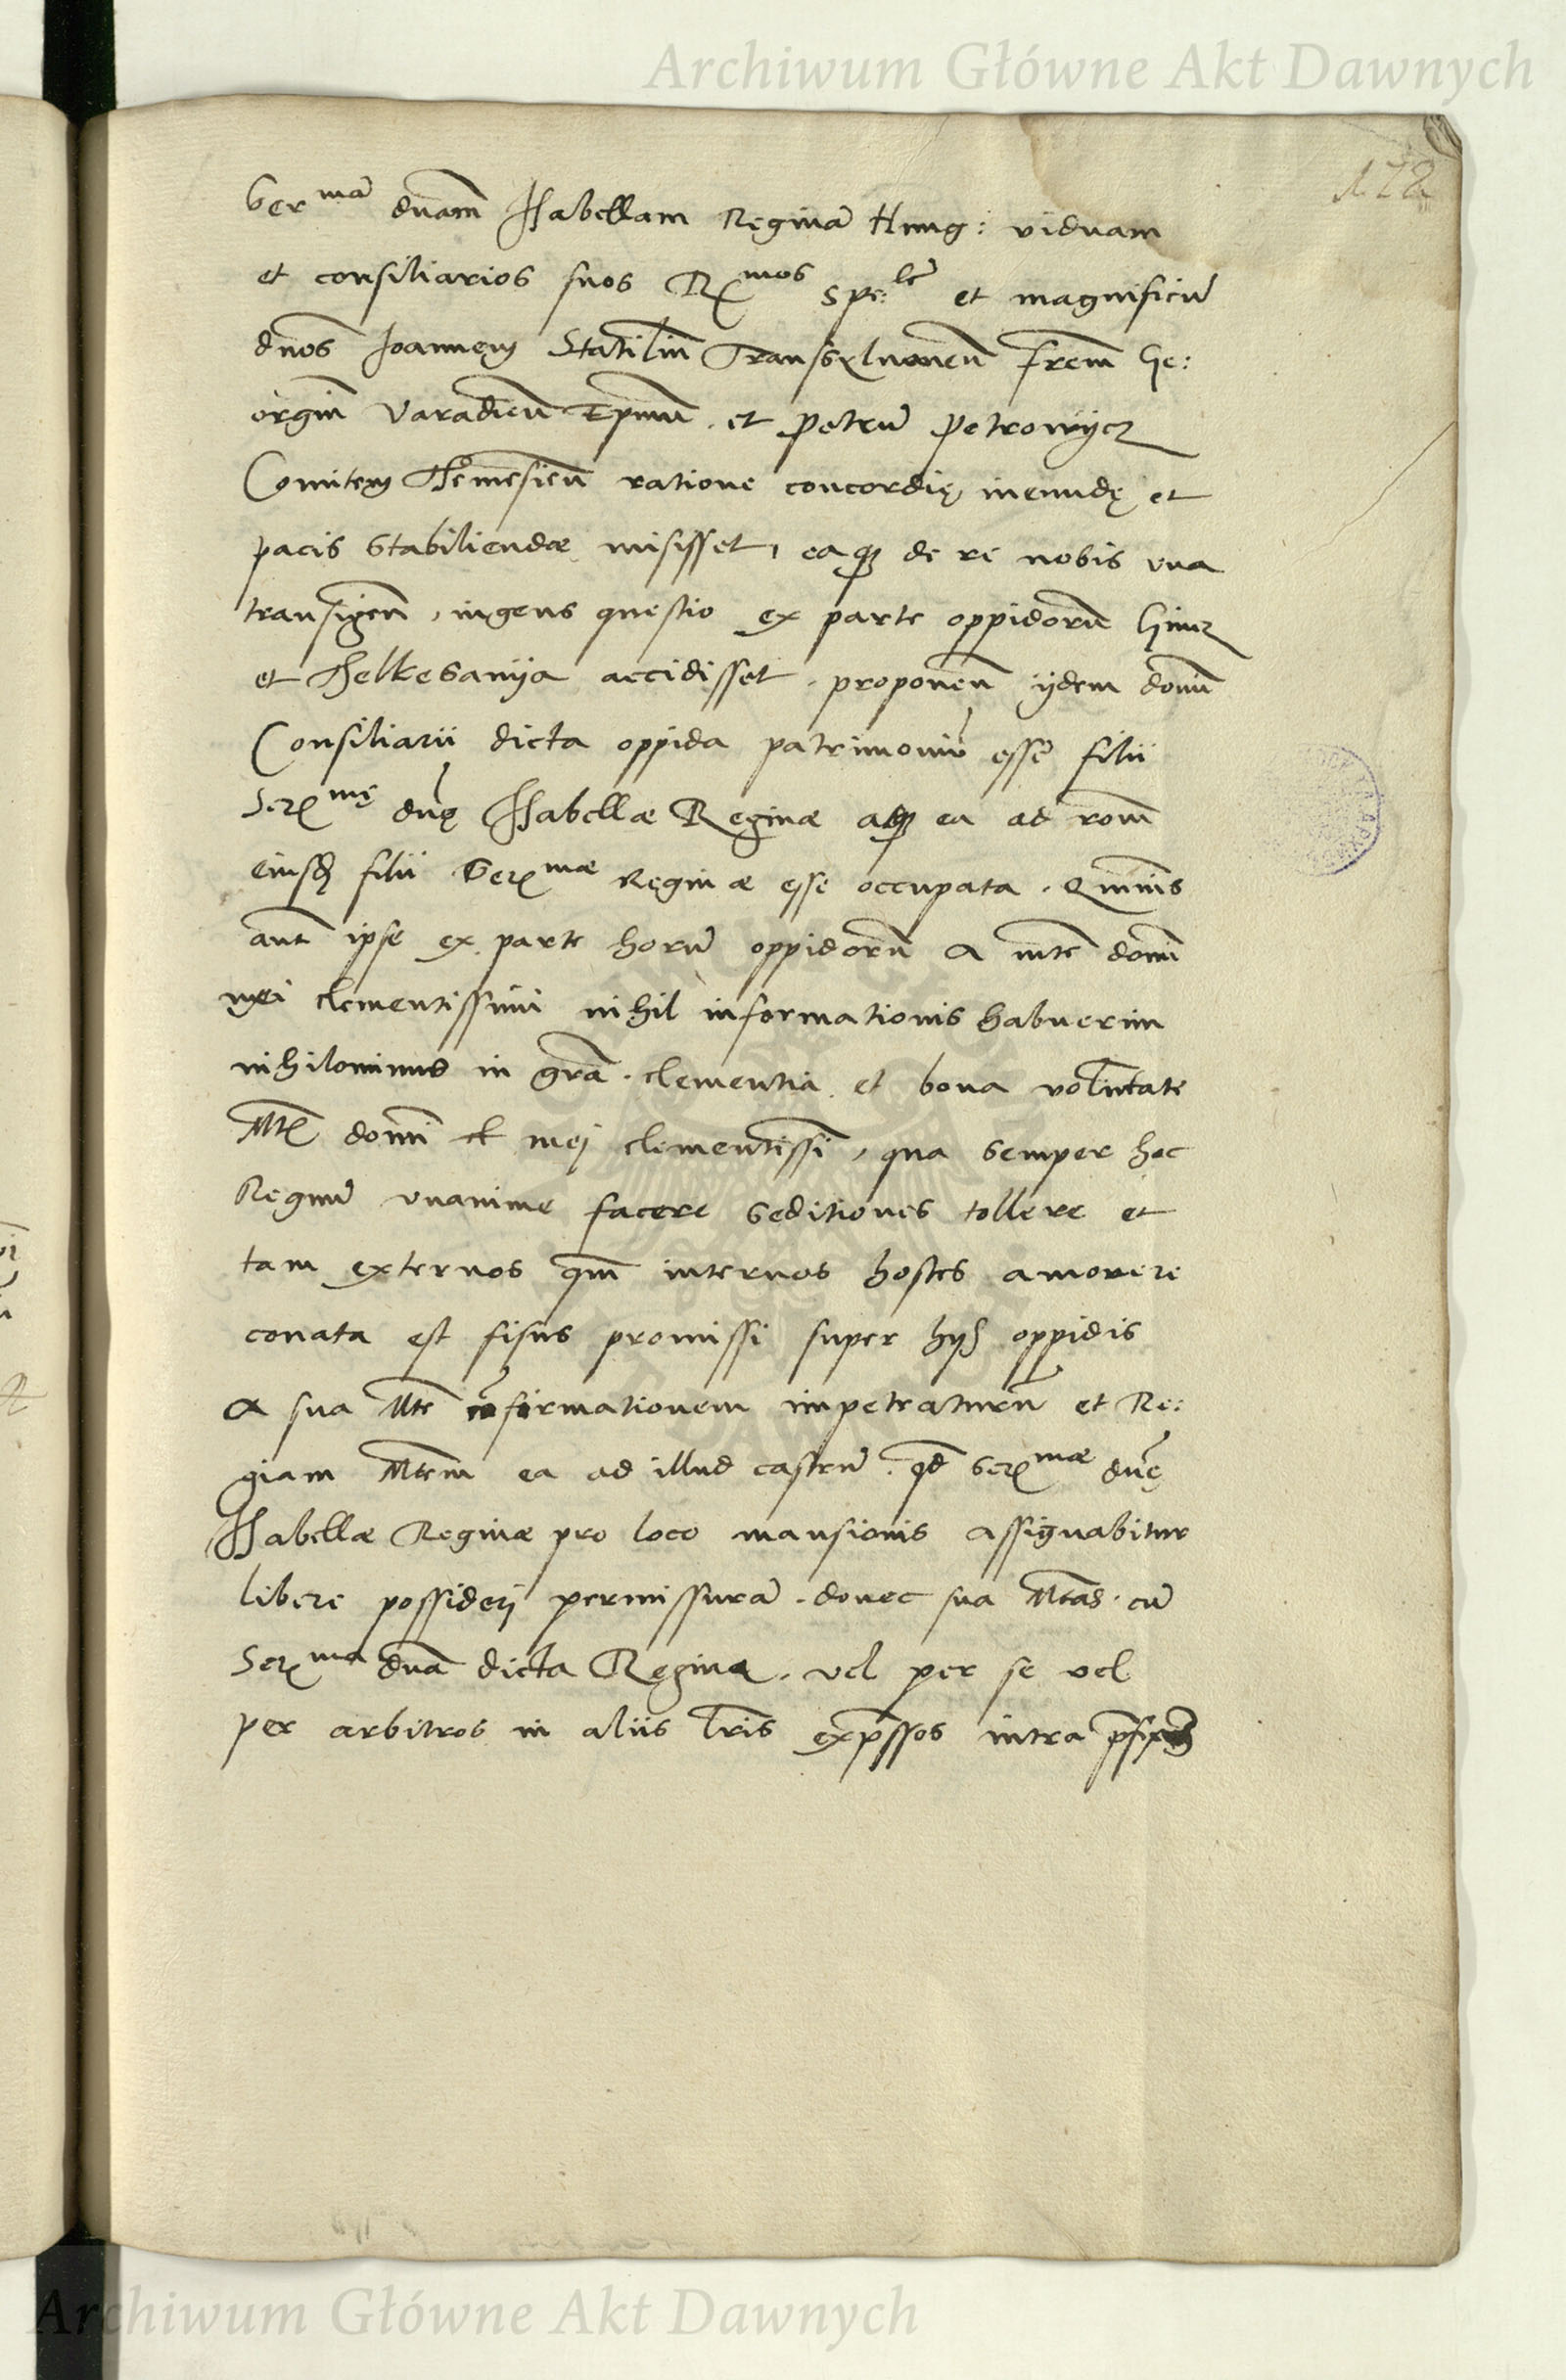 Archiwum Główne Akt Dawnych
122
Sermā dnam Isabellam Reginā Hung: viduam
et consiliarios suos Rmos Spe:lē et magnificū
dnos Joannem Statiliū Transsylvanen̄ frem̄ Ge:
orgiū Varadien̄ Epum̄ . et Petrū Petrowijcz
Comitem Themesien̄ ratione concordię ineundę et
pacis stabiliendæ misisset, eaq; de re nobis una
transigen̄, ingens questio ex parte oppidorū Ginicz
et Thelkebanija accidisset . proponen̄ ijdem domī
Consiliarii dicta oppida patrimoniū esse filii
Sermę dnę Isabellæ Reginæ atq; ea ad rom̄
eiusd filii Sermæ Reginæ esse occupata . Quīuis
aut̄ ipse ex parte horū oppidorū a mte domī
mei clementissimi nihil informationis habuerim
nihilominus in grā . clementia et bona voluntate
Mtis domī mej clementissī, qua semper hoc
Regnū unanime facere seditiones tollere et
tam externos qm̄ internos hostes amovere
conata est fisus promissi super hijs oppidis
a sua Mte cōfirmationem impetraturū et Re:
giam Mtem ea ad illud castrū . qd Sermæ dnę
Isabellæ Reginæ pro loco mansionis assignabitur
libere possiderj permissurā . donec sua Mtas . cū
Serma dna dicta Regina . vel per se vel
per arbitros in aliis lris exp̄ssos intra
Archiwum Główne Akt Dawnych